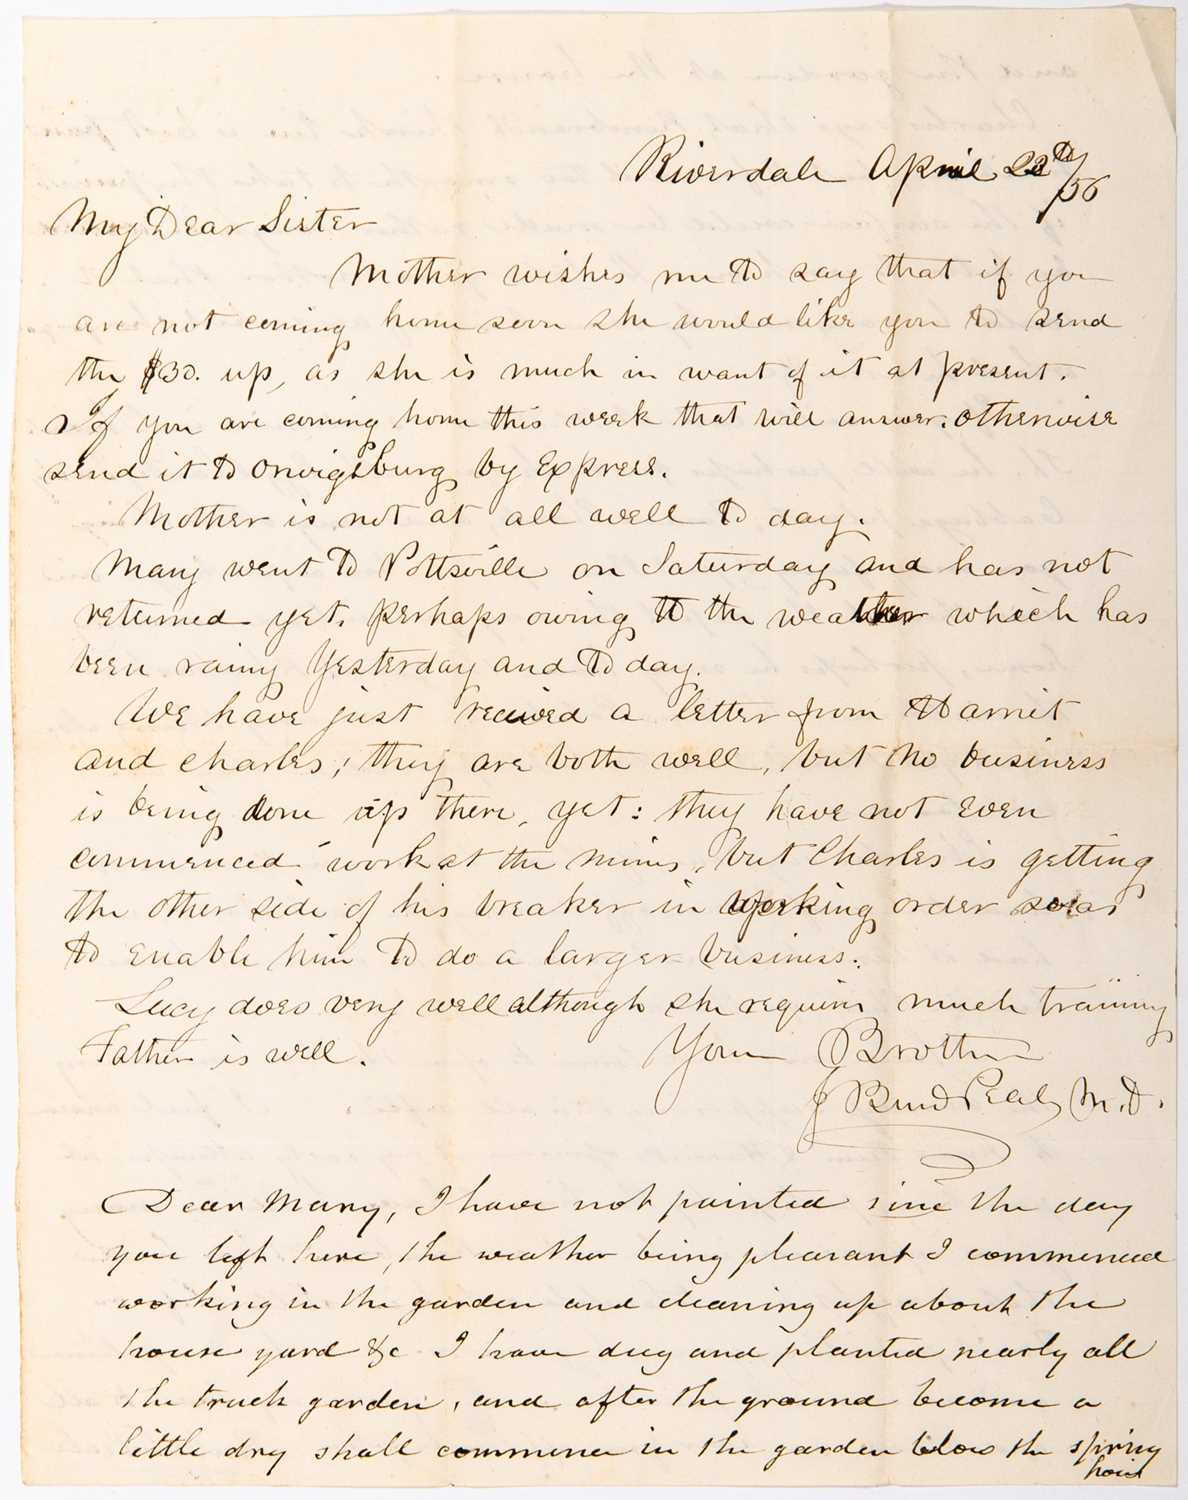 Riverdale April 22d/56
My Dear Sister
Mother wishes me to say that if you
are not coming home soon she would like you to send
the $30. up, as she is much in want of it at present.
If you are coming home this week that will answer. otherwise
send it to Orwigsburg by Express.
Mother is not at all well to day.
Mary went to Pottsville on Saturday and has not
returned yet. perhaps owing to the weather which has
been rainy Yesterday and to day.
We have just received a letter from Harriet
and Charles; they are both well, but no business
is being done up there, yet: they have not even
commenced work at the mines, but Charles is getting
the other side of his breaker in working order so as
to enable him to do a larger business.
Lucy does very well although she requires much training
Father is well. Your Brother
J Burd Peale M.D.
Dear Mary, I have not painted since the day
you left here, the weather being pleasant I commenced
working in the garden and cleaning up about the
house yard &c I have dug and planted nearly all
the truck garden, and after the ground become a
little dry shall commence in the garden blow the spring
house